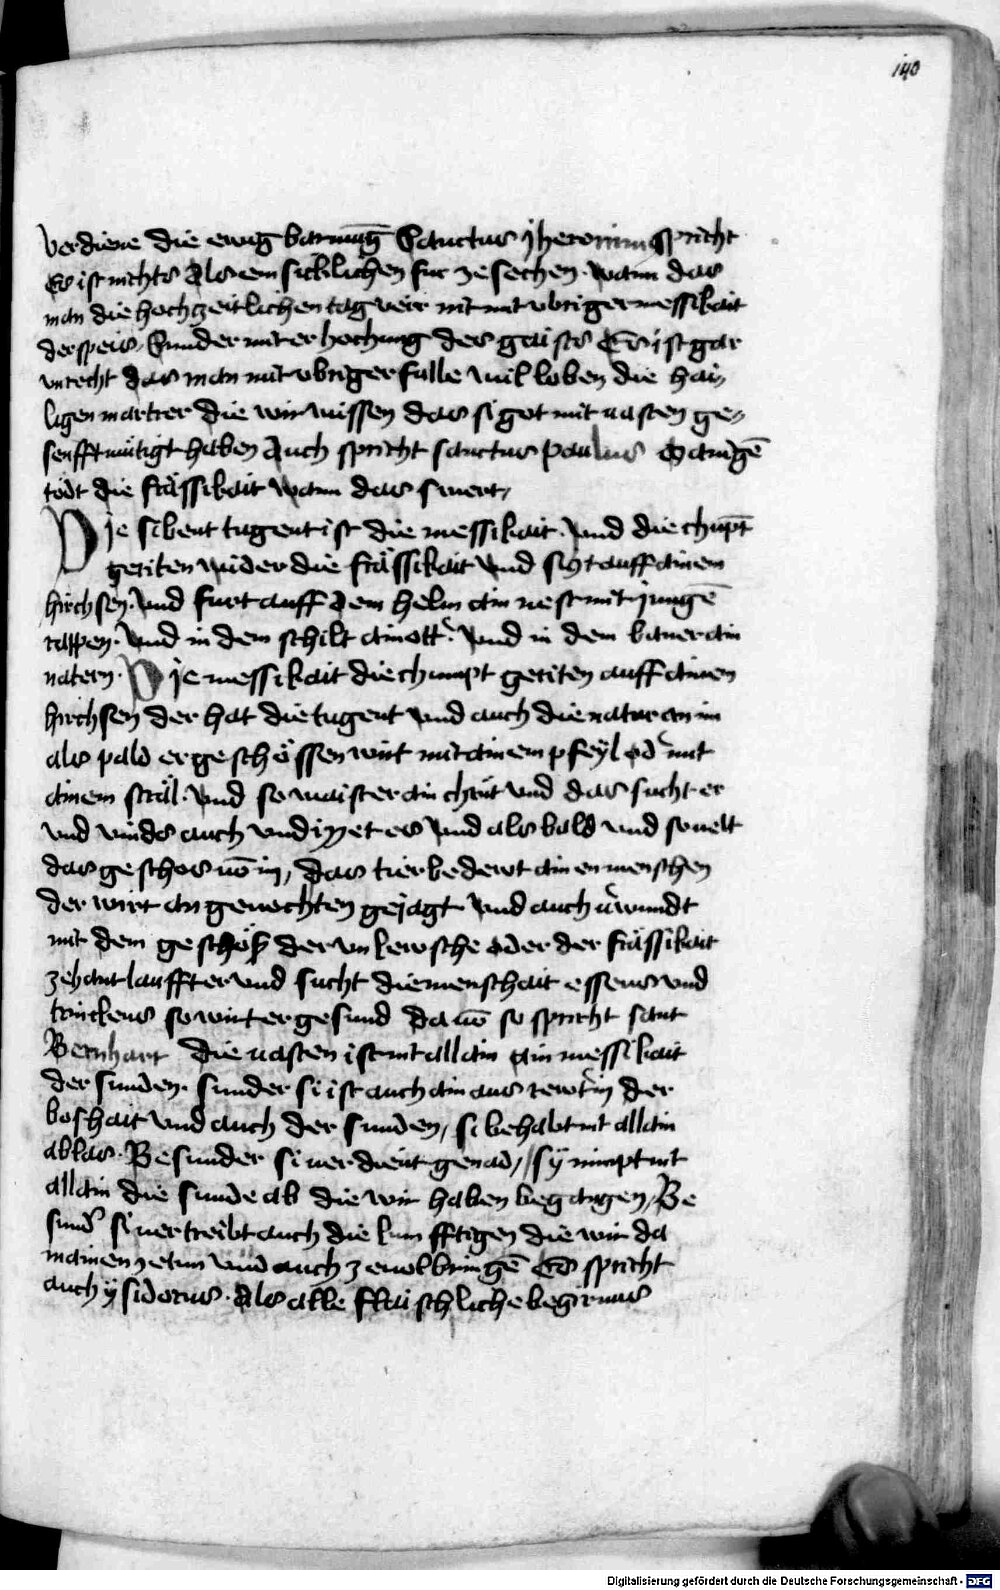 140
verdiene die ewig barmūg Sanctus Jheronimus spricht
Es ist nichts als ein sicklichen fur ze sechen. wann das
man die hochzeitlichen tag veir nit mit vbriger messikait
der speis, Sunder mit erhochung des gaists Es ist gar
vnrecht das man mit vbriger fulle wil loben die hai
ligen martrer die wir wissen das si got mit vasten ge„
senfftmütigt haben Auch spricht sanctus paulus
todt die frässikait wann das swert,
Die sibent tugent ist die messikait. vnd die chūpt
geriten wider die frässikait vnd sytzt auff ainem
hirchsen. vnd furt auff dem helm ain nest mit jungē
rappen. vnd in dem schilt ain ott. vnd in dem baner ain
natern. Die messikait die chumpt geriten auff ainen
hirchsen der hat die tugent vnd auch die natur an im
als pald er geschössen wirt mit ainem pfeyl od mit
ainem sträl. vnd so waist er ain chrut vnd das sucht er
vnd vinds auch vnd yzzet es vnd als bald vnd so velt
das geschos vō im, das tier bedewt ainen menschen
der wirt angevochten gejagt vnd auch v̄wundt
mit dem geschoß der vnkewsche oder der frässikait
zehant laufft er vnd sucht die menschait essens vnd
trinckens so wirt er gesund da vō so spricht sant
Bernhart die vasten ist nit allain ain messikait
der sunden. sunder si ist auch ain aus rewtin der
boshait vnd auch der sunden, si behabt nit allain
ablas. Besunder si verdient genad, sy nimpt nit
allain die sunde ab die wir haben begangen, Be
sund si vertreibt auch die kunfftigen die wir da
mainen zetun vnd auch ze volbringē Es spricht
auch ysidorus. Als alle flaischliche begirnus
Digitalisierung gefördert durch die Deutsche Forschungsgemeinschaft - DFG